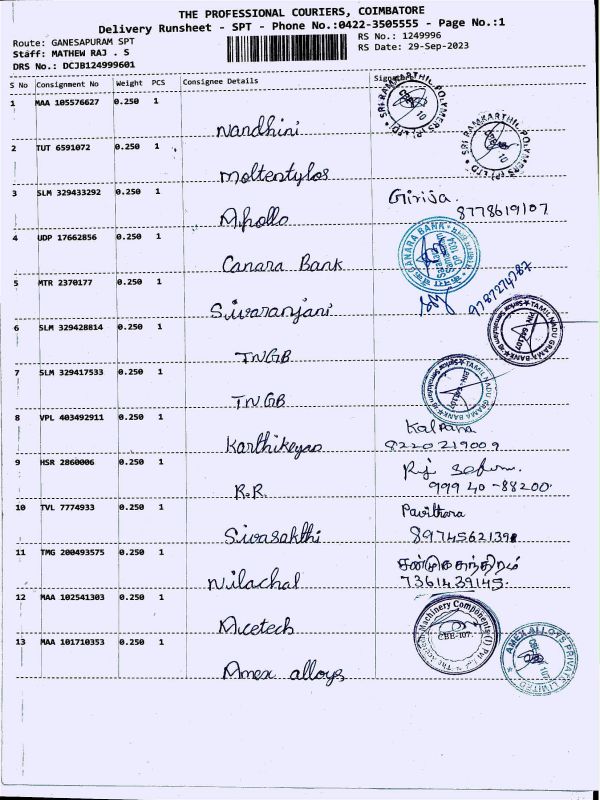 THE PROFESSIONAL COURIERS, COIMBATORE
Delivery Runsheet - SPT - Phone No.:0422-3505555 - Page No.:1
Route: GANESAPURAM SPT
RS No.: 1249996
Staff: MATHEW RAJ . S
RS Date: 29-Sep-2023
DRS No.: DCJB124999601
S No Consignment No Weight PCS Consignee Details
1 MAA 105576627 0.250 1
SRI RAMKARTHIL POLYMERS (P) LTD
Nandhini
2 TUT 6591072 0.250 1
SRI RAMKARTHIL POLYMERS (P) LTD
Moltentylos
3 SLM 329433292 0.250 1
Girija.
8778619107
Apollo
4 UDP 17662856 0.250 1
CANARA BANK
Canara Bank
5 MTR 2370177 0.250 1
9787274787
Sivaranjani
6 SLM 329428814 0.250 1
TAMIL NADU GRAMA BANK
TNGB
7 SLM 329417533 0.250 1
TAMIL NADU GRAMA BANK
TNGB
8 VPL 403492911 0.250 1
Kalpana
Karthikeyan 8220219009
9 HSR 2860006 0.250 1
R.R. 999 40-88200
10 TVL 7774933 0.250 1
Pavithara
Sivasakthi 8974562139
11 TMG 200493575 0.250 1
Nilachal 7361439145.
12 MAA 102541303 0.250 1
Machinery Components (I) Pvt Ltd
CBE-107.
Acetech
13 MAA 101710353 0.250 1
AMEX ALLOYS PRIVATE LIMITED
Amex alloys